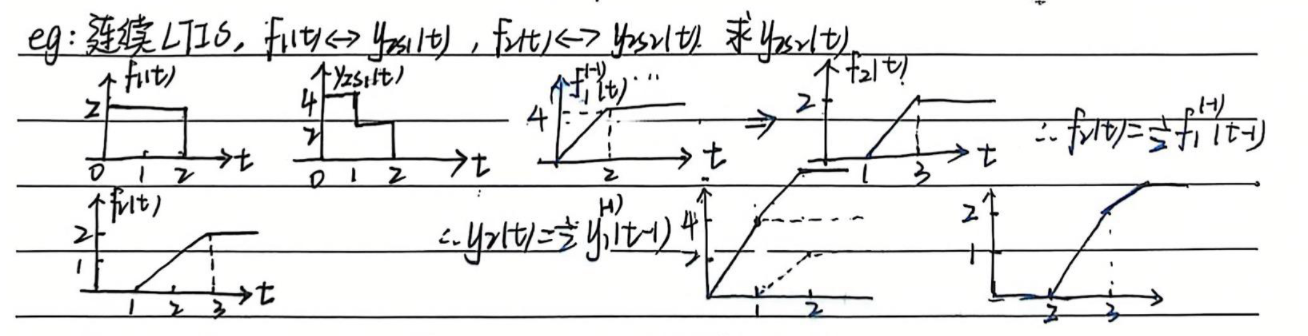 eg: 连续LTIS, f₁(t)↔yzs₁(t), f₂(t)↔yzs₂(t). 求yzs₂(t)
f₁(t) 2 0 1 2 t
yzs₁(t) 4 2 0 1 2 t
f₁⁽⁻¹⁾(t) … 4 2 t
⇒ f₂(t) 2 1 3 t
∴ f₂(t)=½f₁⁽⁻¹⁾(t-1)
f₂(t) 2 1 1 2 3 t
∴ y₂(t)=½y₁⁽⁻¹⁾(t-1)
4 2 1 2
2 1 2 3